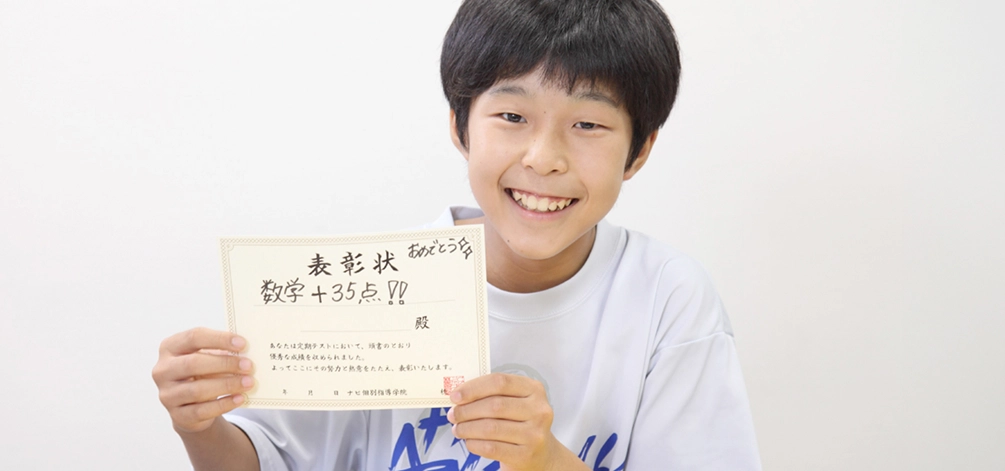 表彰状 おめでとう☆☆
数学+35点!!
殿
あなたは定期テストにおいて、頭書のとおり
優秀な成績を収められました。
よってここにその努力と熱意をたたえ、表彰いたします。
年 月 日 ナビ個別指導学院